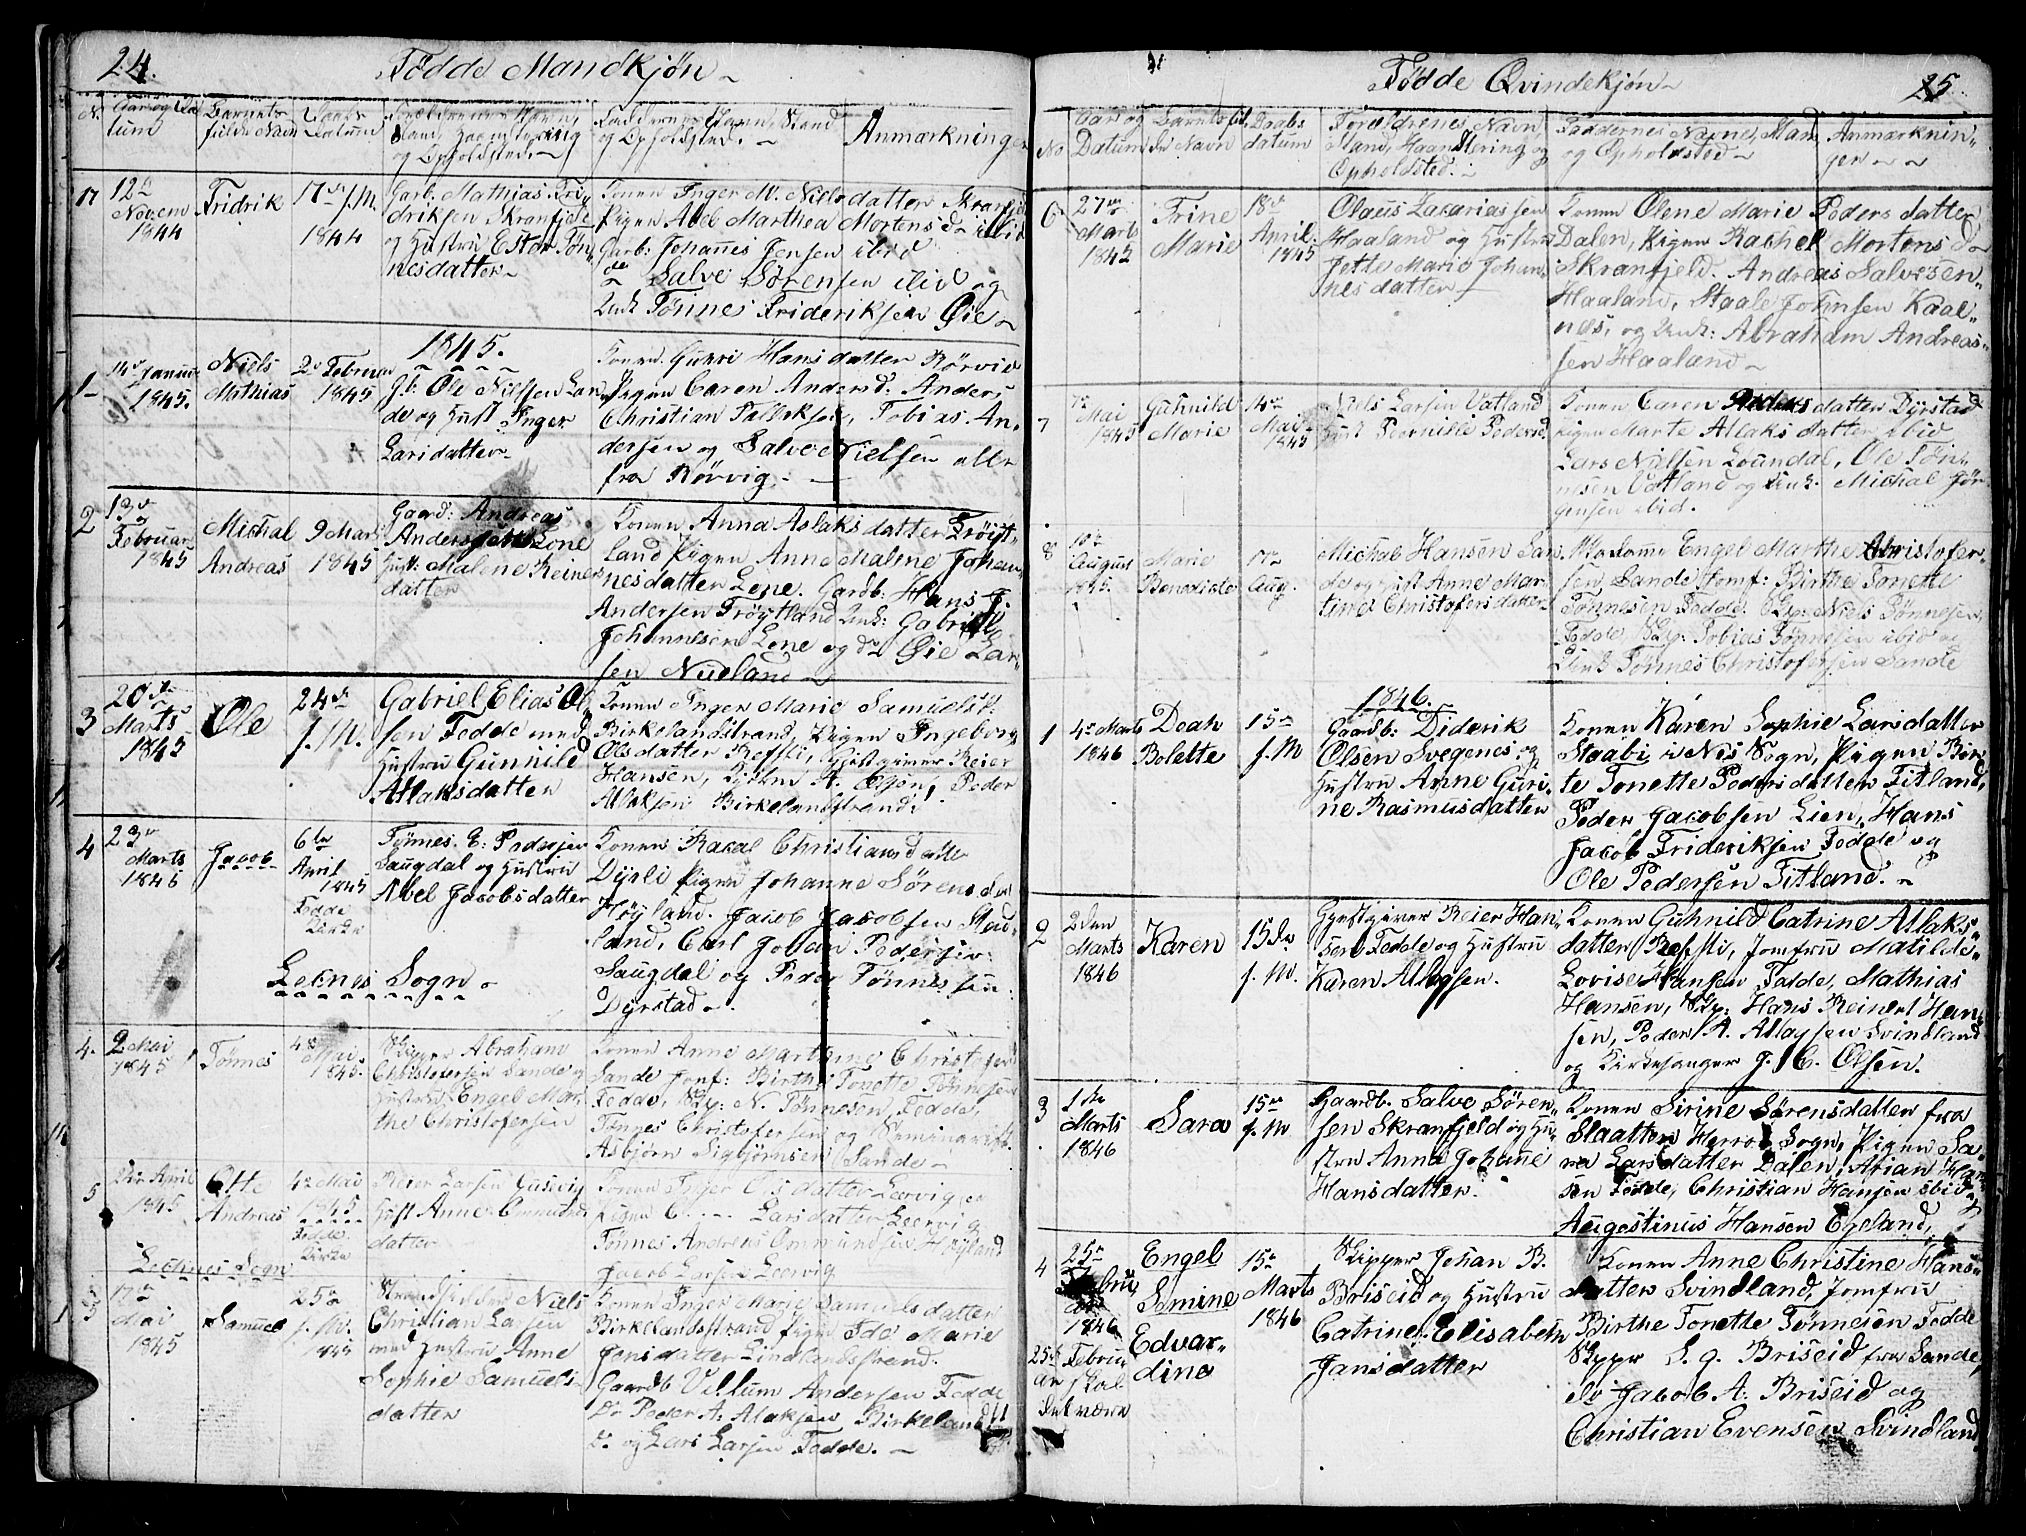 24.
Fødde Mandkjøn
N.
Aar og Da
tum
Barnets
fulde Navn
Daabs
Datum
Forældrenes Navn,
Stand, Haandtering
og Opholdsted.
Faddernes Navn, Stand
og Opholdsted.
Anmærkninger
17
12te
Novem
1844
Fridrik
17de f. M.
1844
Garb. Mathias Fri-
driksen Skranfjeld
og Hustru Ester Tøn-
nesdatter
Konen Inger M. Nielsdatter Skranfjeld
Pigen Abel Marthea Mortensd. ibid
Garb: Johanes Jensen ibid
do Salve Sørensen ibid og
Unk Tønnes Frideriksen Øie
1845.
1
14de Januar
1845.
Niels
Mathias
2de Februar
1845
Gb: Ole Nielsen Lan
de og Hust Inger
Larsdatter
Konen Gunri Hansdatter Rørvig
Pigen Caren Andersd. Anders
Christian Falkesen, Tobias An-
dersen og Salve Nielsen alle
fra Rørvig.
2
13de
Februar
1845
Michal
Andreas
9 Mars
1845
Gaard: Andreas
Andersen Lone
Hust: Malene Reiners
datter
Konen Anna Aslaksdatter Trøigt-
land Pigen Anne Malene Johan-
nesdatter Lone. Gardb: Hans J.
Andersen Trøgtland Unk: Gabriel
Johannesen Lone og do Øie Lar-
sen Nueland
3
20de
Marts
1845
Ole
24de
f. M.
Gabriel Elias Ol
sen Fedde med
Hustru Gunnild
Atlaksdatter
Konen Inger Marie Samuelsd.
Birkelandstrand, Pigen Ingeborg
Olsdatter Refsti, Gjestgiver Reier
Hansen, A. Olsen, Peder
Atlaksen Birkelandstrand.
4
23de
Marts
1845
Jacob
6te
April
1845
Fedde
Kirke
Tønnes E. Pedersen
Laugdal og Hustru
Abel Jacobsdatter
Konen Rakal Christiansdatter
Dyrli Pigen Johanne Sørensdat
Høyland. Jacob Jacobsen Stau-
land, Carl Johan Pedersen
Laugdal og Peder Tønnessen
Dyrstad.
Leknes Sogn
4.
2 Mai
1845
Tønnes
4de Mai
1845.
Skipper Abraham
Christofersen Sande og
Hustru Engel Mar-
the Christofersen
Konen Anne Marthine Christofersen
Sande Jomf: Birthe Tonette Tønnesen
Fedde, Skp: N. Tønnesen, Fedde,
Tønnes Christofersen og Seminarist
Asbjørn Sigbjørnsen Sande
5
April
1845
Otte
Andreas
4de Mai
1845
Fedde
Kirke
Reier Larsen
Hust Anne Ommunds
datter
Konen Inger Olsdatter Leervig
Pigen C.... Larsdatter Leervig
Tønnes Andreas Ommundsen Høyland
Jacob Larsen Leervig
Leknes Sogn
5
17de
Mai
1845
Samuel
25de
f. M.
1845
Strandsidder Niels
Christian Larsen
med Hustru Anne
Sophie Samuels-
datter
Konen Inger Marie Samuelsdatter
Birkelandsstrand Pigen Ide Marie
Jensdatter Lindlandsstrand.
Gaardb Villum Andersen Fedde
Do Peder A. Atlaksen Birkeland
Do og Lars Larsen Fedde.
Fødde Qvindekjøn
25.
No
Aar og
Datum
Barnets ful
de Navn
Daabs
datum
Forældrenes Navn,
Stand, Haandtering og
Opholdsted.
Faddernes Navne, Stan
og Opholdsted
Anmærknin-
ger
6
27de
Marts
1845
Trine
Marie
18de
April.
1845
Olaus Zakariassen
Haaland og Hustru
Jette Marie Johan-
nesdatter
Konen Olene Marie Pedersdatter
Dalen, Pigen Rachel Mortensd
Skranfjeld. Andreas Salvesen
Haaland, Staale Johnsen Kaal-
nes, og Unk: Abraham Andreas-
sen Haaland
7
Mai
1845
Guhnild
Marie
14de
Mai
1845
Niels Larsen Vatland
Hust Peornille Pedersd.
Konen Caren datter Dyrstad
Pigen Marte Atlaksdatter ibid
Lars Nielsen Loundal, Ole Tøn-
nesen Vatland og Unk. Michal Jør-
gensen ibid.
8
10de
August
1845.
Marie
Benedicte
17de
Aug.
Michal Hansen San
de og Hust Anne Mar-
tine Christofersdatter
Madame Engel Marthe Christofer-
sen, Sande Jomf: Birthe Tonette
Tønnesen Fedde. Skp: Niels Tønnesen,
Fedde Skp: Tobias Tønnesen ibid og
Unk Tønnes Christofersen Sande
1846.
1
4de Marts
1846
Deah
Bolette
15de
f. M
Gaardb: Diderik
Olsen Svegenes og
Hustru Anne Guri-
ne Rasmusdatter
Konen Karen Sophie Larsdatter
Staabi i Nes Sogn, Pigen Bir-
te Tonette Pedersdatter Titland,
Peder Jacobsen Lien, Hans
Jacob Frideriksen Fedde og
Ole Pedersen Titland.
2
2den
Marts
1846
Karen
15de
f. M.
Gjestgiver Reier Han-
sen Fedde og Hustru
Karen Atlagsen.
Konen Guhnild Catrine Atlaks-
datter Refsti, Jomfru Matilde
Lovise Hansen Fedde, Mathias
Hansen, Skp: Hans Reinert Han-
sen, Peder A. Atlagsen Svindland
og Kirkesanger J. C. Olsen.
3
1te
Marts
1846
Sara
15de
f. M
Gaardb. Salve Søren-
sen Skranfjeld og Hu-
stru Anna Johane
Hansdatter.
Konen Sirine Sørensdatter fra
Slaatten Herro Sogn, Pigen Sa-
ra Larsdatter Dalen, Arian Han-
sen Fedde, Christian Hansen ibid
Augestinus Hansen Egeland,
4
25de
Febru
ar
1846
25de
Februar
skal
det være
Engel
Semine
Edvar-
dine
15de
Marts
1846
Skipper Johan B.
Briseid og Hustru
Catrine Elisabeth
Jansdatter
Konen Anne Christine Hans-
datter Svindland, Jomfru
Birthe Tonette Tønnesen Fedde
Skippr S. G. Briseid fra Sande
do Jacob A. Briseid og
Christian Evensen Svindland